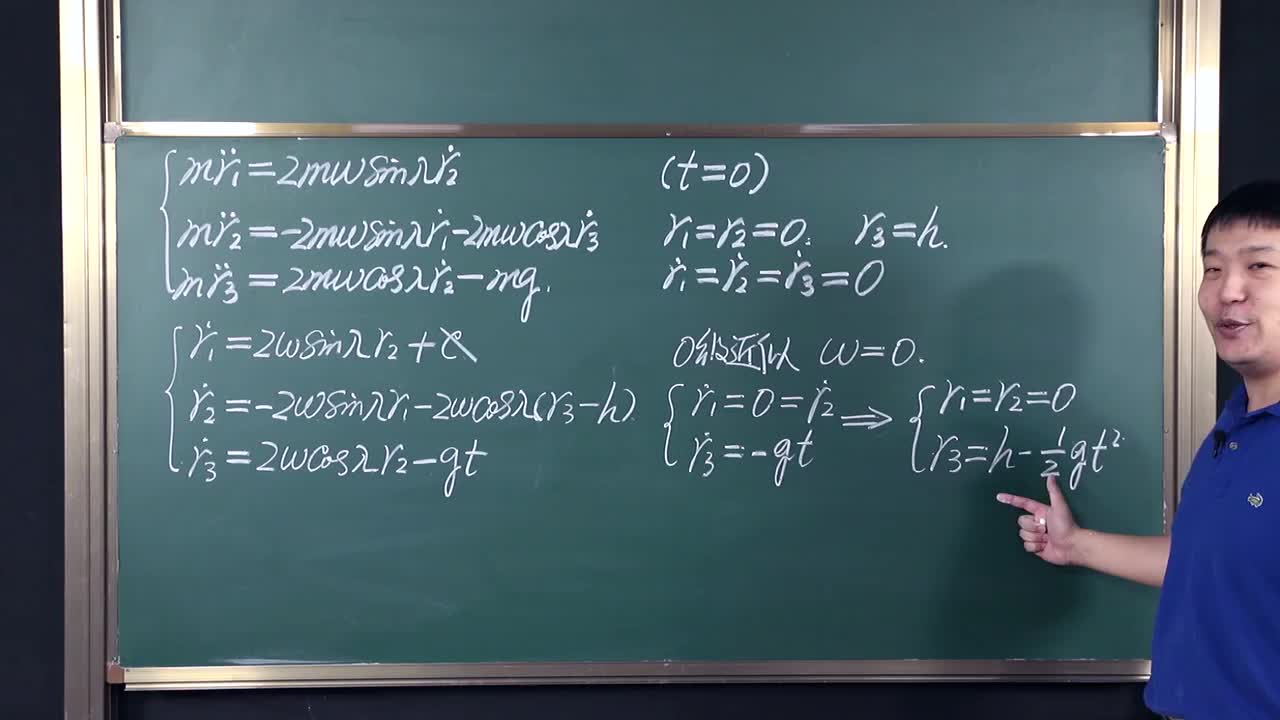 mr̈₁=2mωsinλṙ₂
mr̈₂=-2mωsinλṙ₁-2mωcosλṙ₃
mr̈₃=2mωcosλṙ₂-mg.
(t=0)
r₁=r₂=0. r₃=h.
ṙ₁=ṙ₂=ṙ₃=0
ṙ₁=2ωsinλr₂+c
ṙ₂=-2ωsinλr₁-2ωcosλ(r₃-h)
ṙ₃=2ωcosλr₂-gt
0级近似 ω=0.
ṙ₁=0=ṙ₂
ṙ₃=-gt
⇒
r₁=r₂=0
r₃=h-½gt²